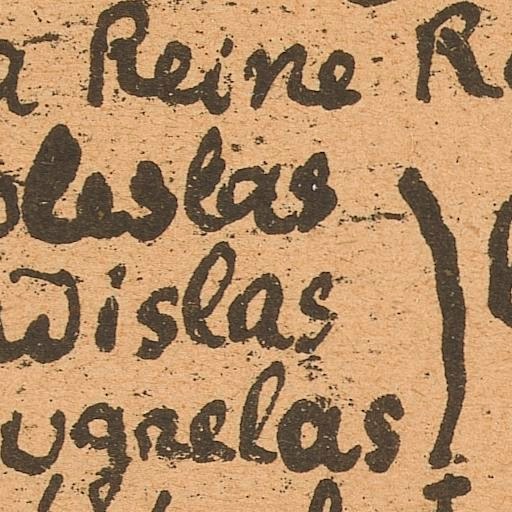 a Reine R
oleslas
dislas
ugrelas